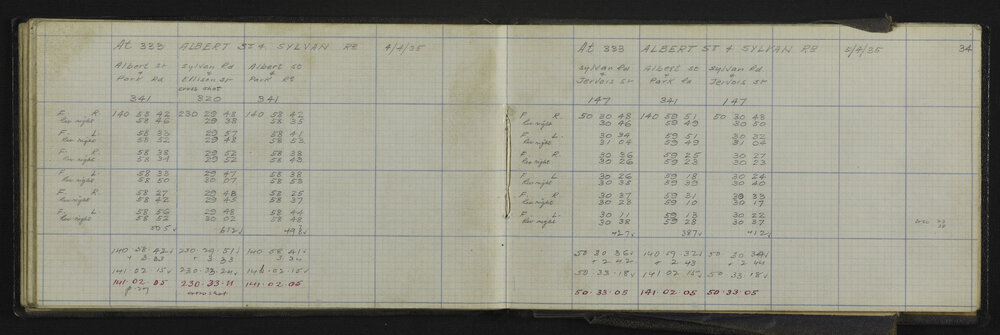 At 333 ALBERT ST & SYLVAN RD 4/4/35
Albert St & Park Rd
Sylvan Rd & Ellison St cross shot
Albert St & Park Rd
341 320 341
F. R. 140 58 42 230 29 48 140 58 42
Rev night 58 46 29 38 58 35
F. L. 58 33 29 57 58 41
Rev night 58 52 29 48 58 53
F. R. 58 38 29 52 58 38
Rev night 58 34 29 52 58 43
F. L. 58 33 29 47 58 38
Rev night 58 50 30 07 58 53
F. R. 58 27 29 48 58 25
Rev night 58 42 29 45 58 37
F. L. 58 56 29 48 58 44
Rev night 58 52 30 02 58 48
505√ 612√ 498√
140.58.42√ 230.29.51√ 140.58.41√
+ 3.33 + 3.33 3.34
141.02.15√ 230.33.24√ 141.02.15√
141.02.05 230.33.11 141.02.05
p.29 cross shot
At 333 ALBERT ST & SYLVAN RD 5/4/35 34
Sylvan Rd & Jervois St
Albert St & Park Rd
Sylvan Rd & Jervois St
147 341 147
F. R. 50 30 48 140 59 51 50 30 48
Rev night 30 46 59 49 30 50
F. L. 30 34 59 51 30 32
Rev night 31 04 59 49 31 04
F. R. 30 36 59 25 30 27
Rev night 30 26 59 23 30 23
F. L. 30 26 59 18 30 24
Rev night 30 38 59 39 30 40
F. R. 30 37 59 31 29 33
Rev night 30 28 59 10 30 17
F. L. 30 11 59 13 30 22
Rev night 30 38 59 28 30 37
427√ 387√ 412√
50 30 36√ 140 59 32√ 50 30 34√
+ 2 42 + 2 43 + 2 44
50.33.18√ 141 02 15√ 50.33.18√
50.33.05 141.02.05 50.33.05